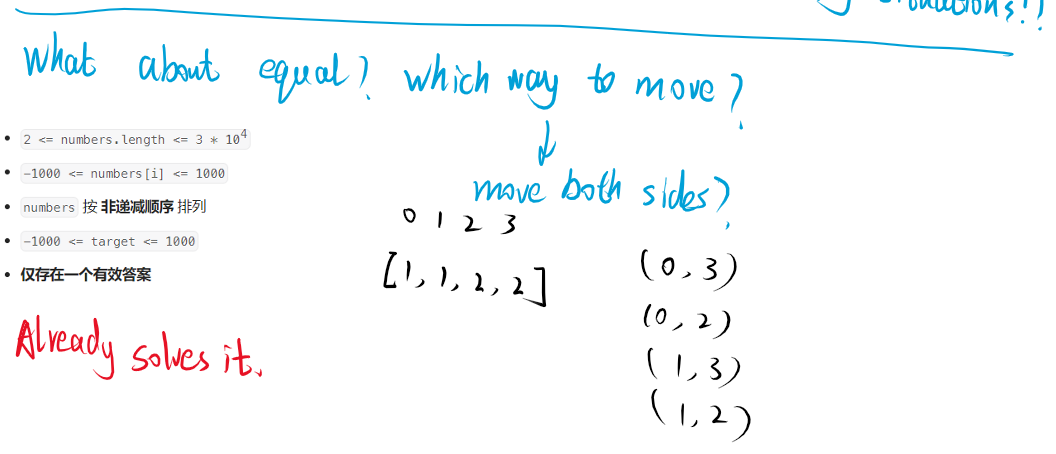 What about equal? which way to move?
move both sides?
2 <= numbers.length <= 3 * 10^4
-1000 <= numbers[i] <= 1000
numbers 按 非递减顺序 排列
-1000 <= target <= 1000
仅存在一个有效答案
0 1 2 3
[1, 1, 2, 2]
(0, 3)
(0, 2)
(1, 3)
(1, 2)
Already solves it.